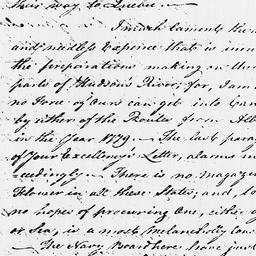 their way to Quebec. —
I much lament the
and needless Expence that is incur
the preparations making in the
parts of Hudson's River; for, I am
no Force of Ours can get into Can
by either of the Routes from Alb
in the Year 1779 — The last parag
of Your Excellency's Letter, alarms m
ceedingly — There is no Magazin
Flower in all these States, and, to
no hopes of procuring One, either by
or Sea, is a most melancholly Cons
— The Navy Board here have just